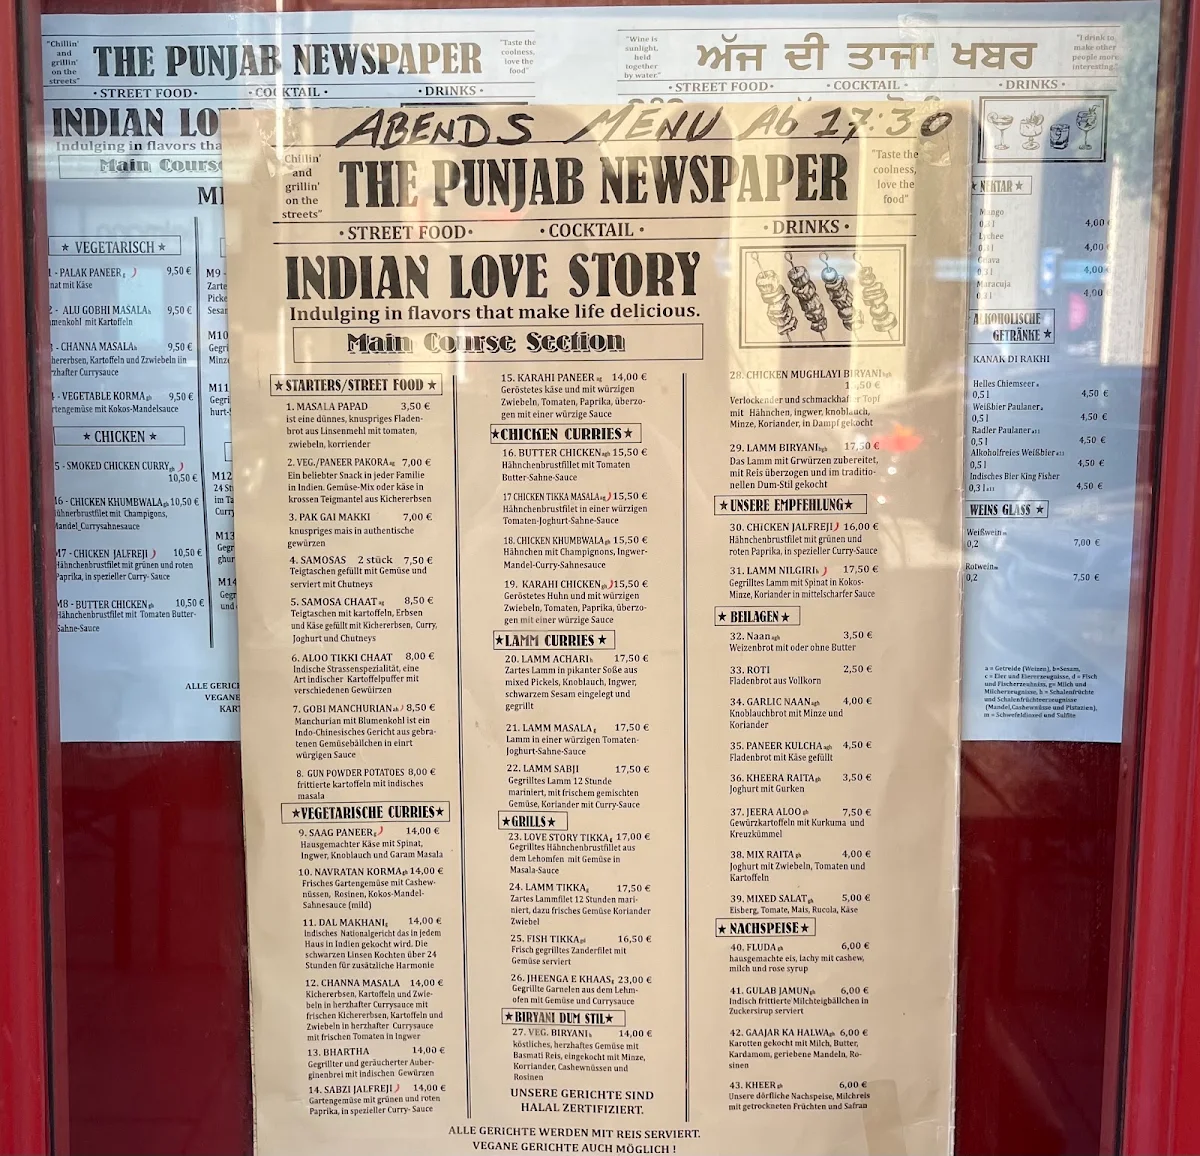 "Chillin'
and
grillin'
on the
streets"
THE PUNJAB NEWSPAPER
"Taste the
coolness,
love the
food"
· STREET FOOD· · COCKTAIL · · DRINKS ·
INDIAN LO
Indulging in flavors tha
Main Cours
★ VEGETARISCH ★
- PALAK PANEER 9,50 €
nat mit Käse
- ALU GOBHI MASALA 9,50 €
menkohl mit Kartoffeln
- CHANNA MASALA 9,50 €
hererbsen, Kartoffeln und Zzwiebeln iin
rzhafter Currysauce
- VEGETABLE KORMA 9,50 €
rtengemüse mit Kokos-Mandelsauce
★ CHICKEN ★
5 - SMOKED CHICKEN CURRY
10,50 €
6 - CHICKEN KHUMBWALA 10,50 €
ühnerbrustfilet mit Champigons,
Mandel_Currysahnesauce
M7 - CHICKEN JALFREJI 10,50 €
Hähnchenbrustfilet mit grünen und roten
Paprika, in spezieller Curry- Sauce
M8 - BUTTER CHICKEN 10,50 €
Hähnchenbrustfilet mit Tomaten Butter-
Sahne-Sauce
M9 -
Zarte
Picke
Sesar
M10
Gegri
Minz
M11
Gegri
hurt-
M12
24 St
im Ta
Curry
M13
Gegr
ghur
M14
Gegr
und
ALLE GERICH
VEGANE
KAR
"Wine is
sunlight,
held
together
by water."
ਅੱਜ ਦੀ ਤਾਜਾ ਖਬਰ
"I drink to
make other
people more
interesting."
· STREET FOOD · · COCKTAIL · · DRINKS ·
★ NEKTAR ★
Mango
0,3 l 4,00
Lychee
0,3 l 4,00
Guava
0,3 l 4,00
Maracuja
0,3 l 4,00
ALKOHOLISCHE
GETRÄNKE ★
KANAK DI RAKHI
Helles Chiemseer
0,5 l 4,50 €
Weißbier Paulaner
0,5 l 4,50 €
Radler Paulaner
0,5 l 4,50 €
Alkoholfreies Weißbier
0,5 l 4,50 €
Indisches Bier King Fisher
0,3 l 4,50 €
WEINS GLASS ★
Weißwein
0,2 7,00 €
Rotwein
0,2 7,50 €
a = Getreide (Weizen), b=Sesam,
c = Eier und Eiererzeugnisse, d = Fisch
und Fischerzeubnism, g= Milch und
Milcherzeugnisse, h = Schalenfrüchte
und Schalenfrüchteerzeugnisse
(Mandel,Cashewnüsse und Pistazien),
m = Schwefeldioxed und Sulfite
ABENDS MENU Ab 17:30
"Chillin'
and
grillin'
on the
streets"
THE PUNJAB NEWSPAPER
"Taste the
coolness,
love the
food"
· STREET FOOD· · COCKTAIL · · DRINKS ·
INDIAN LOVE STORY
Indulging in flavors that make life delicious.
Main Course Section
★ STARTERS/STREET FOOD ★
1. MASALA PAPAD 3,50 €
ist eine dünnes, knuspriges Fladen-
brot aus Linsenmehl mit tomaten,
zwiebeln, korriender
2. VEG./PANEER PAKORA 7,00 €
Ein beliebter Snack in jeder Familie
in Indien. Gemüse-Mix oder käse in
krossen Teigmantel aus Kichererbsen
3. PAK GAI MAKKI 7,00 €
knuspriges mais in authentische
gewürzen
4. SAMOSAS 2 stück 7,50 €
Teigtaschen gefüllt mit Gemüse und
serviert mit Chutneys
5. SAMOSA CHAAT 8,50 €
Teigtaschen mit kartoffeln, Erbsen
und Käse gefüllt mit Kichererbsen, Curry,
Joghurt und Chutneys
6. ALOO TIKKI CHAAT 8,00 €
Indische Strassenspezialität, eine
Art indischer Kartoffelpuffer mit
verschiedenen Gewürzen
7. GOBI MANCHURIAN 8,50 €
Manchurian mit Blumenkohl ist ein
Indo-Chinesisches Gericht aus gebra-
tenen Gemüsebällchen in einrt
würgigen Sauce
8. GUN POWDER POTATOES 8,00 €
frittierte kartoffeln mit indisches
masala
★VEGETARISCHE CURRIES★
9. SAAG PANEER 14,00 €
Hausgemachter Käse mit Spinat,
Ingwer, Knoblauch und Garam Masala
10. NAVRATAN KORMA 14,00 €
Frisches Gartengemüse mit Cashew-
nüssen, Rosinen, Kokos-Mandel-
Sahnesauce (mild)
11. DAL MAKHANI 14,00 €
Indisches Nationalgericht das in jedem
Haus in Indien gekocht wird. Die
schwarzen Linsen Kochten über 24
Stunden für zusätzliche Harmonie
12. CHANNA MASALA 14,00 €
Kichererbsen, Kartoffeln und Zwie-
beln in herzhafter Currysauce mit
frischen Kichererbsen, Kartoffeln und
Zwiebeln in herzhafter Currysauce
mit frischen Tomaten in Ingwer
13. BHARTHA 14,00 €
Gegrillter und geräucherter Auber-
ginenbrei mit indischen Gewürzen
14. SABZI JALFREJI 14,00 €
Gartengemüse mit grünen und roten
Paprika, in spezieller Curry- Sauce
15. KARAHI PANEER 14,00 €
Geröstetes käse und mit würzigen
Zwiebeln, Tomaten, Paprika, überzo-
gen mit einer würzige Sauce
★CHICKEN CURRIES★
16. BUTTER CHICKEN 15,50 €
Hähnchenbrustfilet mit Tomaten
Butter-Sahne-Sauce
17 CHICKEN TIKKA MASALA 15,50 €
Hähnchenbrustfilet in einer würzigen
Tomaten-Joghurt-Sahne-Sauce
18. CHICKEN KHUMBWALA 15,50 €
Hähnchen mit Champignons, Ingwer-
Mandel-Curry-Sahnesauce
19. KARAHI CHICKEN 15,50 €
Geröstetes Huhn und mit würzigen
Zwiebeln, Tomaten, Paprika, überzo-
gen mit einer würzige Sauce
★LAMM CURRIES ★
20. LAMM ACHARI 17,50 €
Zartes Lamm in pikanter Soße aus
mixed Pickels, Knoblauch, Ingwer,
schwarzem Sesam eingelegt und
gegrillt
21. LAMM MASALA 17,50 €
Lamm in einer würzigen Tomaten-
Joghurt-Sahne-Sauce
22. LAMM SABJI 17,50 €
Gegrilltes Lamm 12 Stunde
mariniert, mit frischem gemischten
Gemüse, Koriander mit Curry-Sauce
★GRILLS★
23. LOVE STORY TIKKA 17,00 €
Gegrilltes Hähnchenbrustfilet aus
dem Lehomfen mit Gemüse in
Masala-Sauce
24. LAMM TIKKA 17,50 €
Zartes Lammfilet 12 Stunden mari-
niert, dazu frisches Gemüse Koriander
Zwiebel
25. FISH TIKKA 16,50 €
Frisch gegrilltes Zanderfilet mit
Gemüse serviert
26. JHEENGA E KHAAS 23,00 €
Gegrillte Garnelen aus dem Lehm-
ofen mit Gemüse und Currysauce
★BIRYANI DUM STIL★
27. VEG. BIRYANI 14,00 €
köstliches, herzhaftes Gemüse mit
Basmati Reis, eingekocht mit Minze,
Korriander, Cashewnüssen und
Rosinen
UNSERE GERICHTE SIND
HALAL ZERTIFIZIERT.
28. CHICKEN MUGHLAYI BIRYANI
,50 €
Verlockender und schmackhafter Topf
mit Hähnchen, ingwer, knoblauch,
Minze, Koriander, in Dampf gekocht
29. LAMM BIRYANI 17,50 €
Das Lamm mit Grwürzen zubereitet,
mit Reis überzogen und im traditio-
nellen Dum-Stil gekocht
★UNSERE EMPFEHLUNG★
30. CHICKEN JALFREJI 16,00 €
Hähnchenbrustfilet mit grünen und
roten Paprika, in spezieller Curry-Sauce
31. LAMM NILGIRI 17,50 €
Gegrilltes Lamm mit Spinat in Kokos-
Minze, Koriander in mittelscharfer Sauce
★ BEILAGEN ★
32. Naan 3,50 €
Weizenbrot mit oder ohne Butter
33. ROTI 2,50 €
Fladenbrot aus Vollkorn
34. GARLIC NAAN 4,00 €
Knoblauchbrot mit Minze und
Koriander
35. PANEER KULCHA 4,50 €
Fladenbrot mit Käse gefüllt
36. KHEERA RAITA 3,50 €
Joghurt mit Gurken
37. JEERA ALOO 7,50 €
Gewürzkartoffeln mit Kurkuma und
Kreuzkümmel
38. MIX RAITA 4,00 €
Joghurt mit Zwiebeln, Tomaten und
Kartoffeln
39. MIXED SALAT 5,00 €
Eisberg, Tomate, Mais, Rucola, Käse
★ NACHSPEISE★
40. FLUDA 6,00 €
hausgemachte eis, lachy mit cashew,
milch und rose syrup
41. GULAB JAMUN 6,00 €
Indisch frittierte Milchteigbällchen in
Zuckersirup serviert
42. GAAJAR KA HALWA 6,00 €
Karotten gekocht mit Milch, Butter,
Kardamom, geriebene Mandeln, Ro-
sinen
43. KHEER 6,00 €
Unsere dörfliche Nachspeise, Milchreis
mit getrockneten Früchten und Safran
ALLE GERICHTE WERDEN MIT REIS SERVIERT.
VEGANE GERICHTE AUCH MÖGLICH !